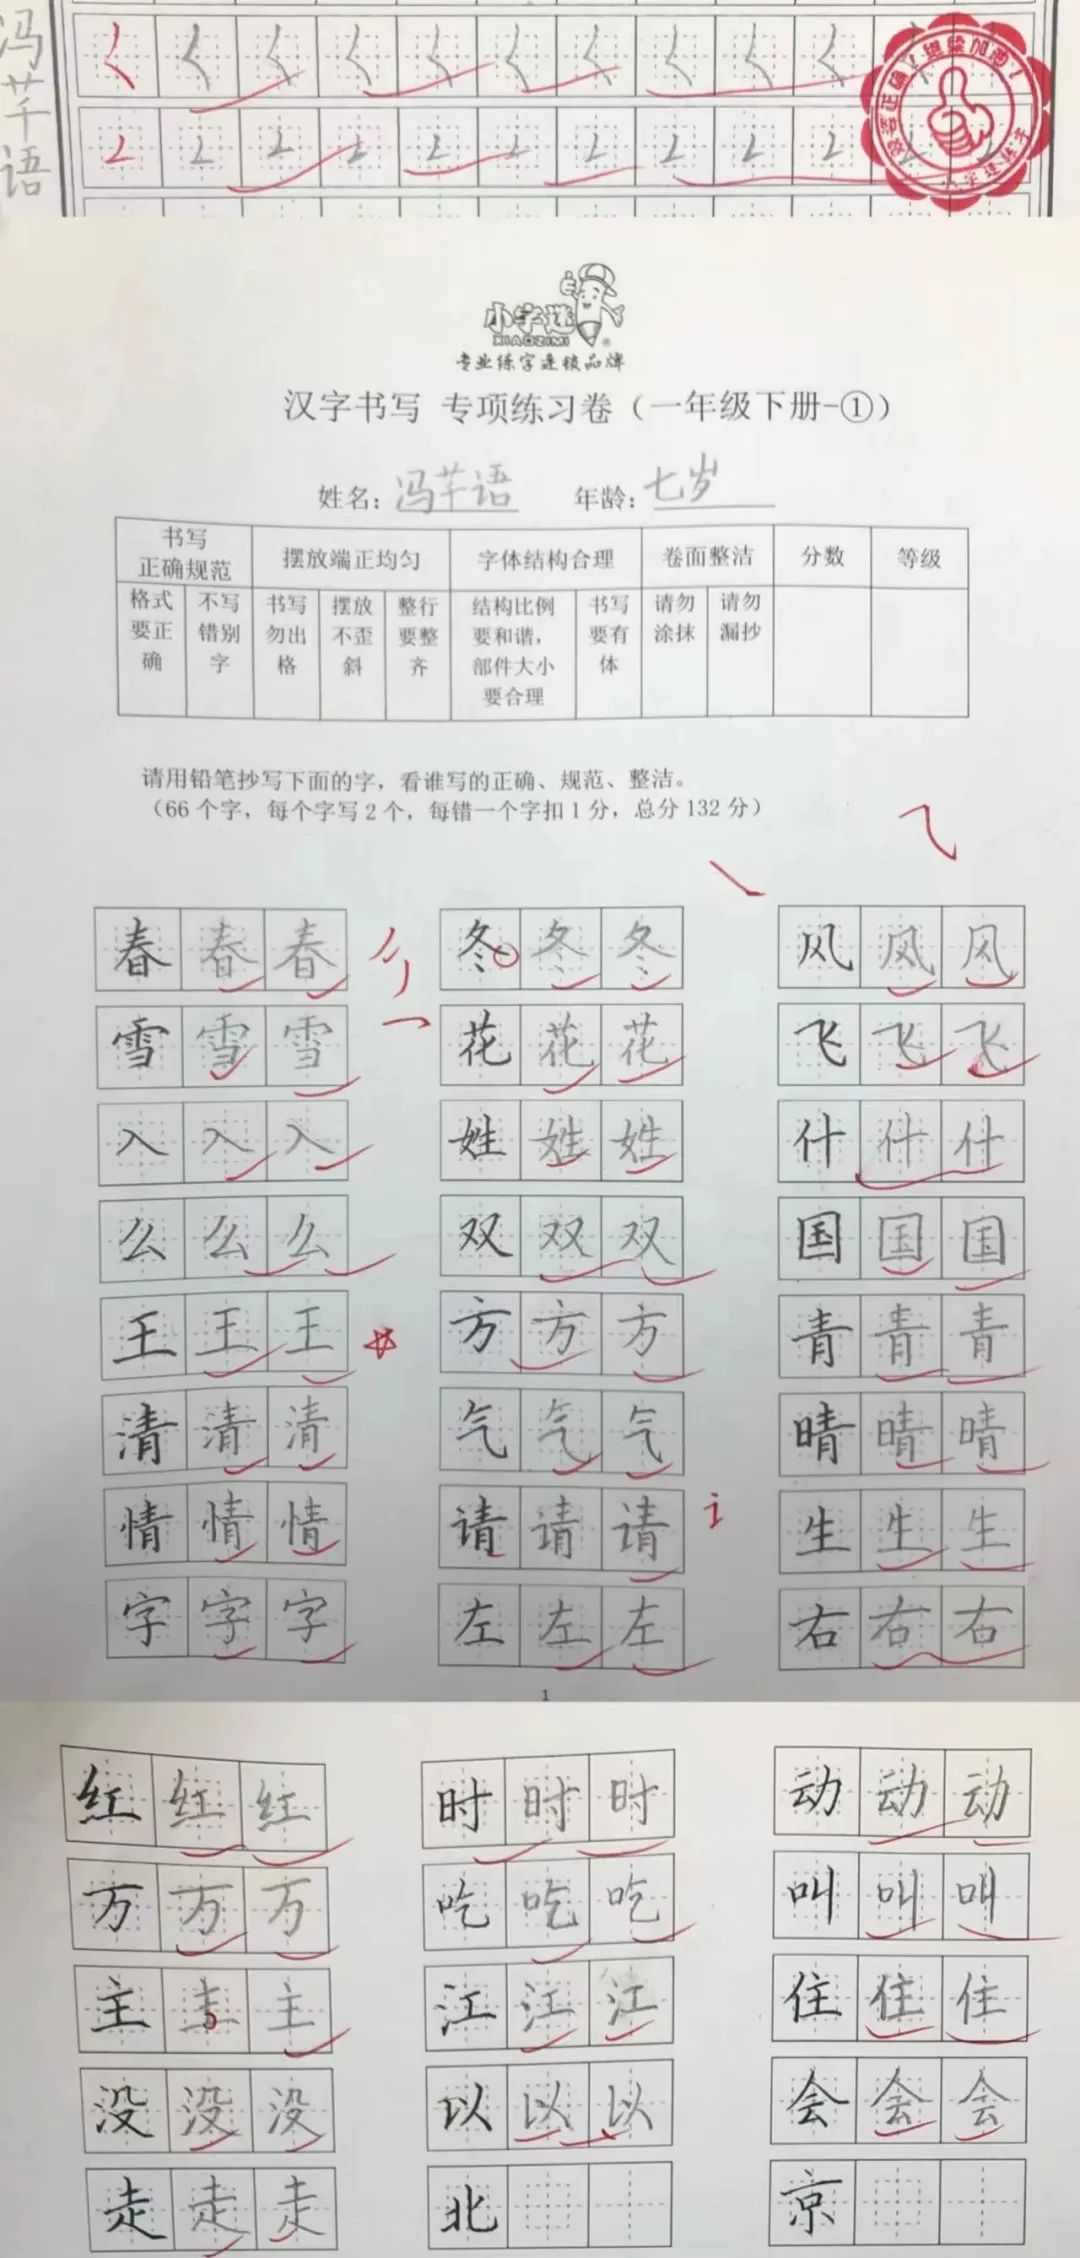 冯芊语
答正确！继续加油！
小字迷练字
小字迷
XIAOZIMI
专业练字连锁品牌
汉字书写 专项练习卷（一年级下册-①）
姓名：冯芊语 年龄：七岁
书写正确规范 摆放端正均匀 字体结构合理 卷面整洁 分数 等级
格式要正确 不写错别字 书写勿出格 摆放不歪斜 整行要整齐 结构比例要和谐，部件大小要合理 书写要有体 请勿涂抹 请勿漏抄
请用铅笔抄写下面的字，看谁写的正确、规范、整洁。
（66个字，每个字写2个，每错一个字扣1分，总分132分）
春春春 冬冬冬 风风风
雪雪雪 花花花 飞飞飞
入入入 姓姓姓 什什什
么么么 双双双 国国国
王王王 方方方 青青青
清清清 气气气 晴晴晴
情情情 请请请 生生生
字字字 左左左 右右右
1
红红红 时时时 动动动
万万万 吃吃吃 叫叫叫
主主主 江江江 住住住
没没没 以以以 会会会
走走走 北 京